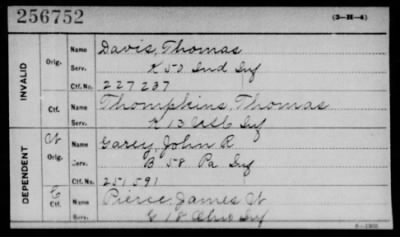 256752
(3-H-4)
INVALID
Orig.
Name Davis, Thomas
Serv. K 50 Ind Inf
Ctf. No. 227237
Ctf.
Name Thompkins, Thomas
Serv. Inf
DEPENDENT
W
Orig.
Name Garey, John R
Serv. B 58 Pa Inf
Ctf. No. 251591
C
Ctf.
Name Pierce James W
Serv. G 18 Ohio Inf